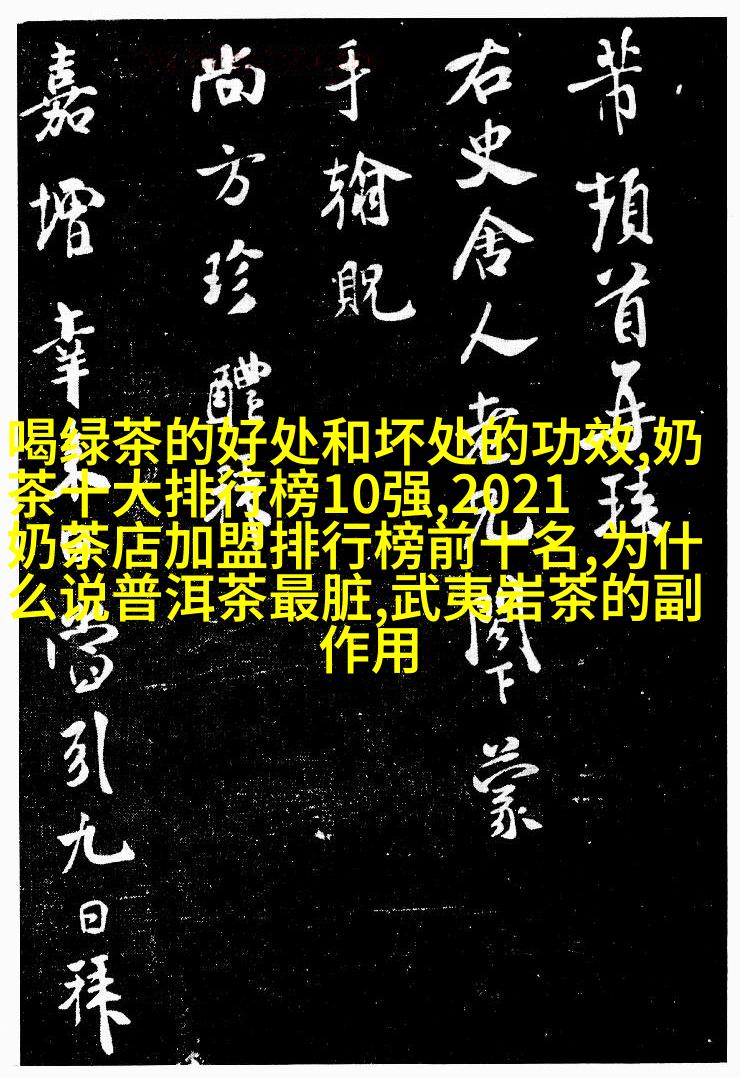 芾頓首再拜
右史舍人老兄閣下蒙
手翰貺
尚方珍醴
嘉增幸當引九日拜
喝绿茶的好处和坏处的功效,奶
茶十大排行榜10强,2021
奶茶店加盟排行榜前十名,为什
么说普洱茶最脏,武夷岩茶的副
作用